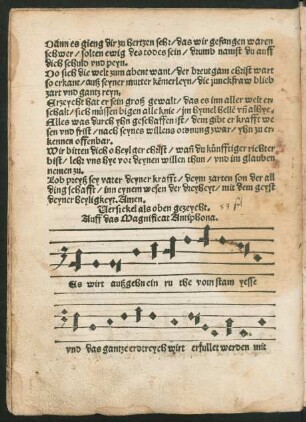 Dañ es gieng dir zu hertzen sehr / das wir gefangen waren
schwer / solten ewig des todes sein / drumb namst du auff
dich schuld vnd peyn.
Do sich die welt zum abent want / der breutgam christ wart
so erkant / auß seyner mutter kēmerleyn / die junckfraw blieb
zart vnd gantz reyn.
Ertzeycht hat er sein groß gewalt / das es inn aller welt er
schalt / sich müssen bigen alle knie / jm hymel helle vñ alhye.
Alles was durch yhn geschaffen ist / dem gibt er krafft we
sen vnd frist / nach seynes willens ordnung zwar / yhn zu er
kennen offenbar.
Wir bitten dich o heylger christ / wañ du künfftiger richter
bist / lehr vns hye vor deynen willen thun / vnd im glauben
nemen zu.
Lob preyß sey vater deyner krafft / deym zarten son der all
ding schafft / inn eynem wesen der dreyheyt / mit dem geyst
deyner heyligkeyt. Amen.
Versickel als oben gezeycht.
Auff das Magnificat Antiphona.
Es wirt außgehn ein ru the vom stam yesse
vnd das gantze erdtreych wirt erfullet werden mit